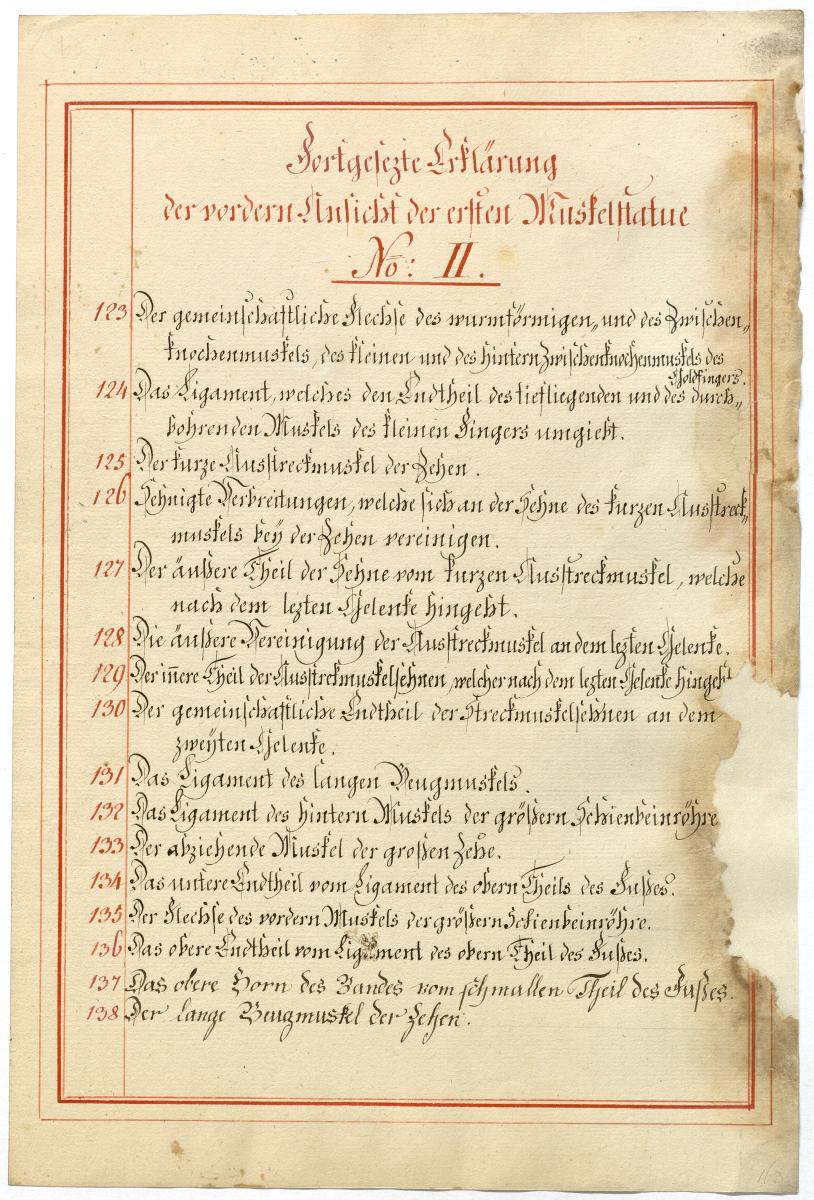 Fortgesezte Erklärung
der vordern Ansicht der ersten Muskelstatue
No: II.
123 Der gemeinschaftliche Flechse des wurmförmigen„ und des Zwischen„
knochenmuskels, des kleinen und des hintern Zwischenknochenmuskels des
Goldfingers.
124 Das Ligament, welches den Endtheil des tiefliegenden und des durch„
bohrenden Muskels des kleinen Fingers umgiebt.
125 Der kurze Ausstreckmuskel der Zehen.
126 Sehnigte Verbreitungen, welche sich an der Sehne des kurzen Ausstreck„
muskels bey der Zehen vereinigen.
127 Der äußere Theil der Sehne vom kurzen Ausstreckmuskel, welche
nach dem lezten Gelenke hingeht.
128 Die äußere Vereinigung der Ausstreckmuskel an dem lezten Gelenke.
129 Der iñere Theil der Ausstrekmuskelsehnen, welcher nach dem lezten Gelenke hingeht
130 Der gemeinschaftliche Endtheil der Streckmuskelsehnen an dem
zweyten Gelenke.
131 Das Ligament des langen Beugmuskels.
132 Das Ligament des hintern Muskels der größern Schienbeinröhre
133 Der abziehende Muskel der großen Zehe.
134 Das untere Endtheil vom Ligament des obern Theils des Fußes.
135 Der Flechse des vordern Muskels der größern Schienbeinröhre.
136 Das obere Endtheil vom Ligament des obern Theil des Fußes.
137 Das obere Horn des Bandes vom schmallen Theil des Fußes.
138 Der lange Beugmuskel der Zehen.